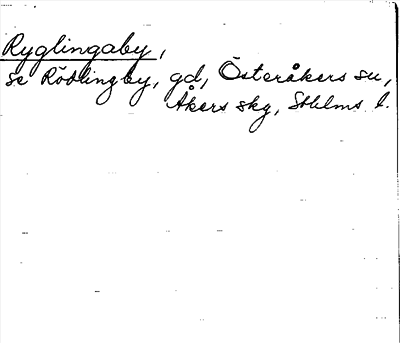 Ryglingaby,
se Rödlingby, gd, Österåkers su,
Åkers skg, Sthlms l.